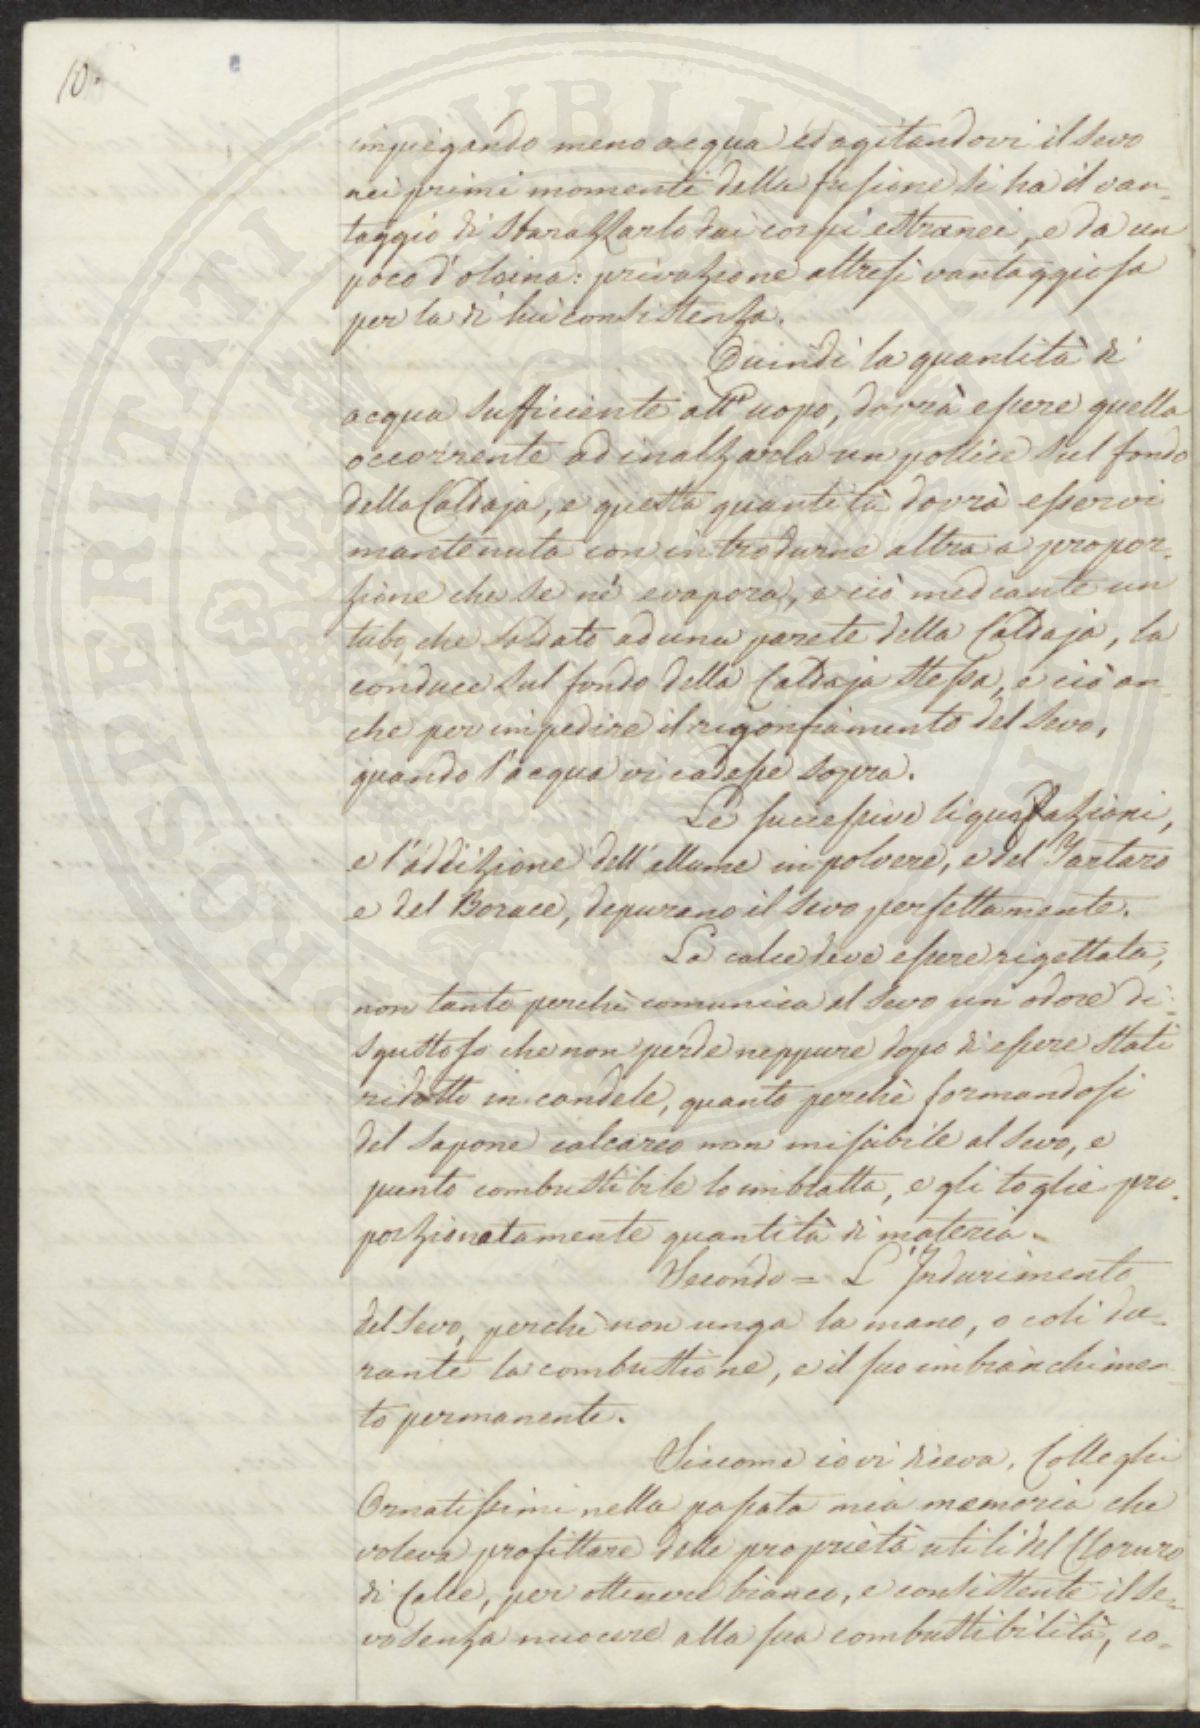 10.
impiegando meno acqua ed agitandovi il sevo
nei primi momenti della fusione si ha il van-
taggio di sbarazzarlo dai corpi estranei, e da un
poco d'oleina: privazione altresì vantaggiosa
per la di lui consistenza.
Quindi la quantità di
acqua sufficiente all'uopo, dovrà essere quella
occorrente ad inalzarla un pollice sul fondo
della Caldaja, e questa quantità dovrà esservi
mantenuta con introdurne altra a propor-
zione che se nè evapora, e ciò mediante un
tubo, che saldato ad una parete della Caldaja, la
conduce sul fondo della Caldaja stessa, e ciò an-
che per impedire il rigonfiamento del sevo,
quando l'acqua vi cadesse sopra.
Le successive liquefazioni,
e l'addizione dell'allume in polvere, e del Tartaro
e del Borace, depurano il sevo perfettamente.
La calce deve essere rigettata,
non tanto perchè comunica al sevo un'odore di-
sgustoso che non perde neppure dopo di essere stati
ridotto in candele, quanto perchè formandosi
del sapone calcareo non miscibile al sevo, e
punto combustibile lo imbratta, e gli toglie pro-
porzionatamente quantità di materia.
Secondo = L'Indurimento
del sevo, perchè non unga la mano, o coli du-
rante la combustione, e il suo imbianchimen-
to permanente.
Siccome io vi diceva, Colleghi
Ornatissimi nella passata mia memoria che
voleva profittare delle proprietà utili del Cloruro
di Calce, per ottenere bianco, e consistente il se-
vo senza nuocere alla sua combustibilità, co-
PROSPERITATI PUBLICAE